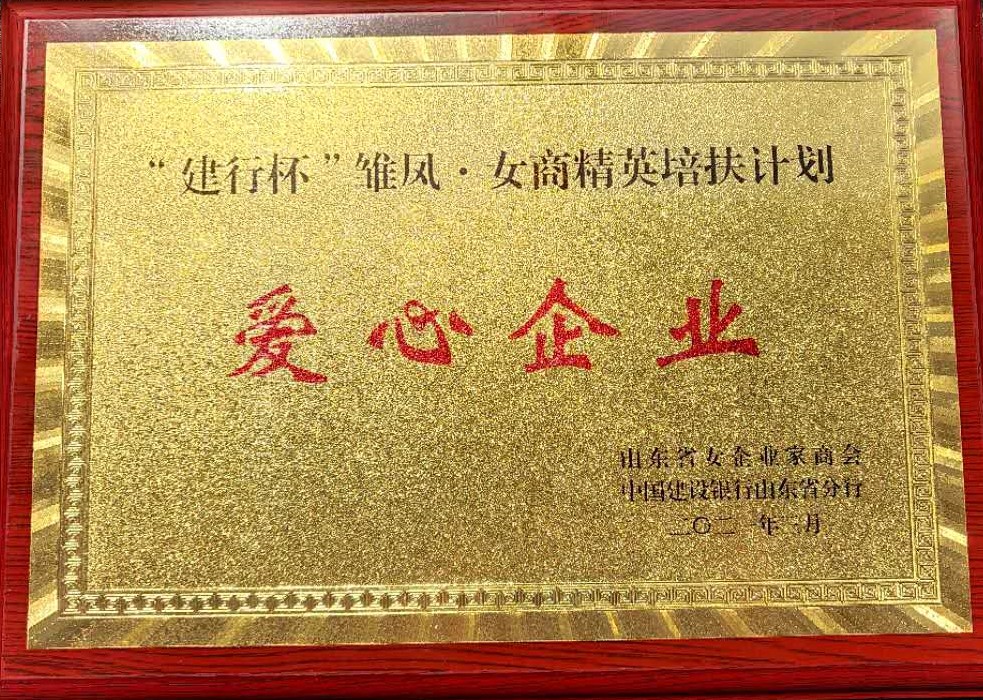 “建行杯”雏凤·女商精英培扶计划
爱心企业
山东省女企业家商会
中国建设银行山东省分行
二〇二 年 月